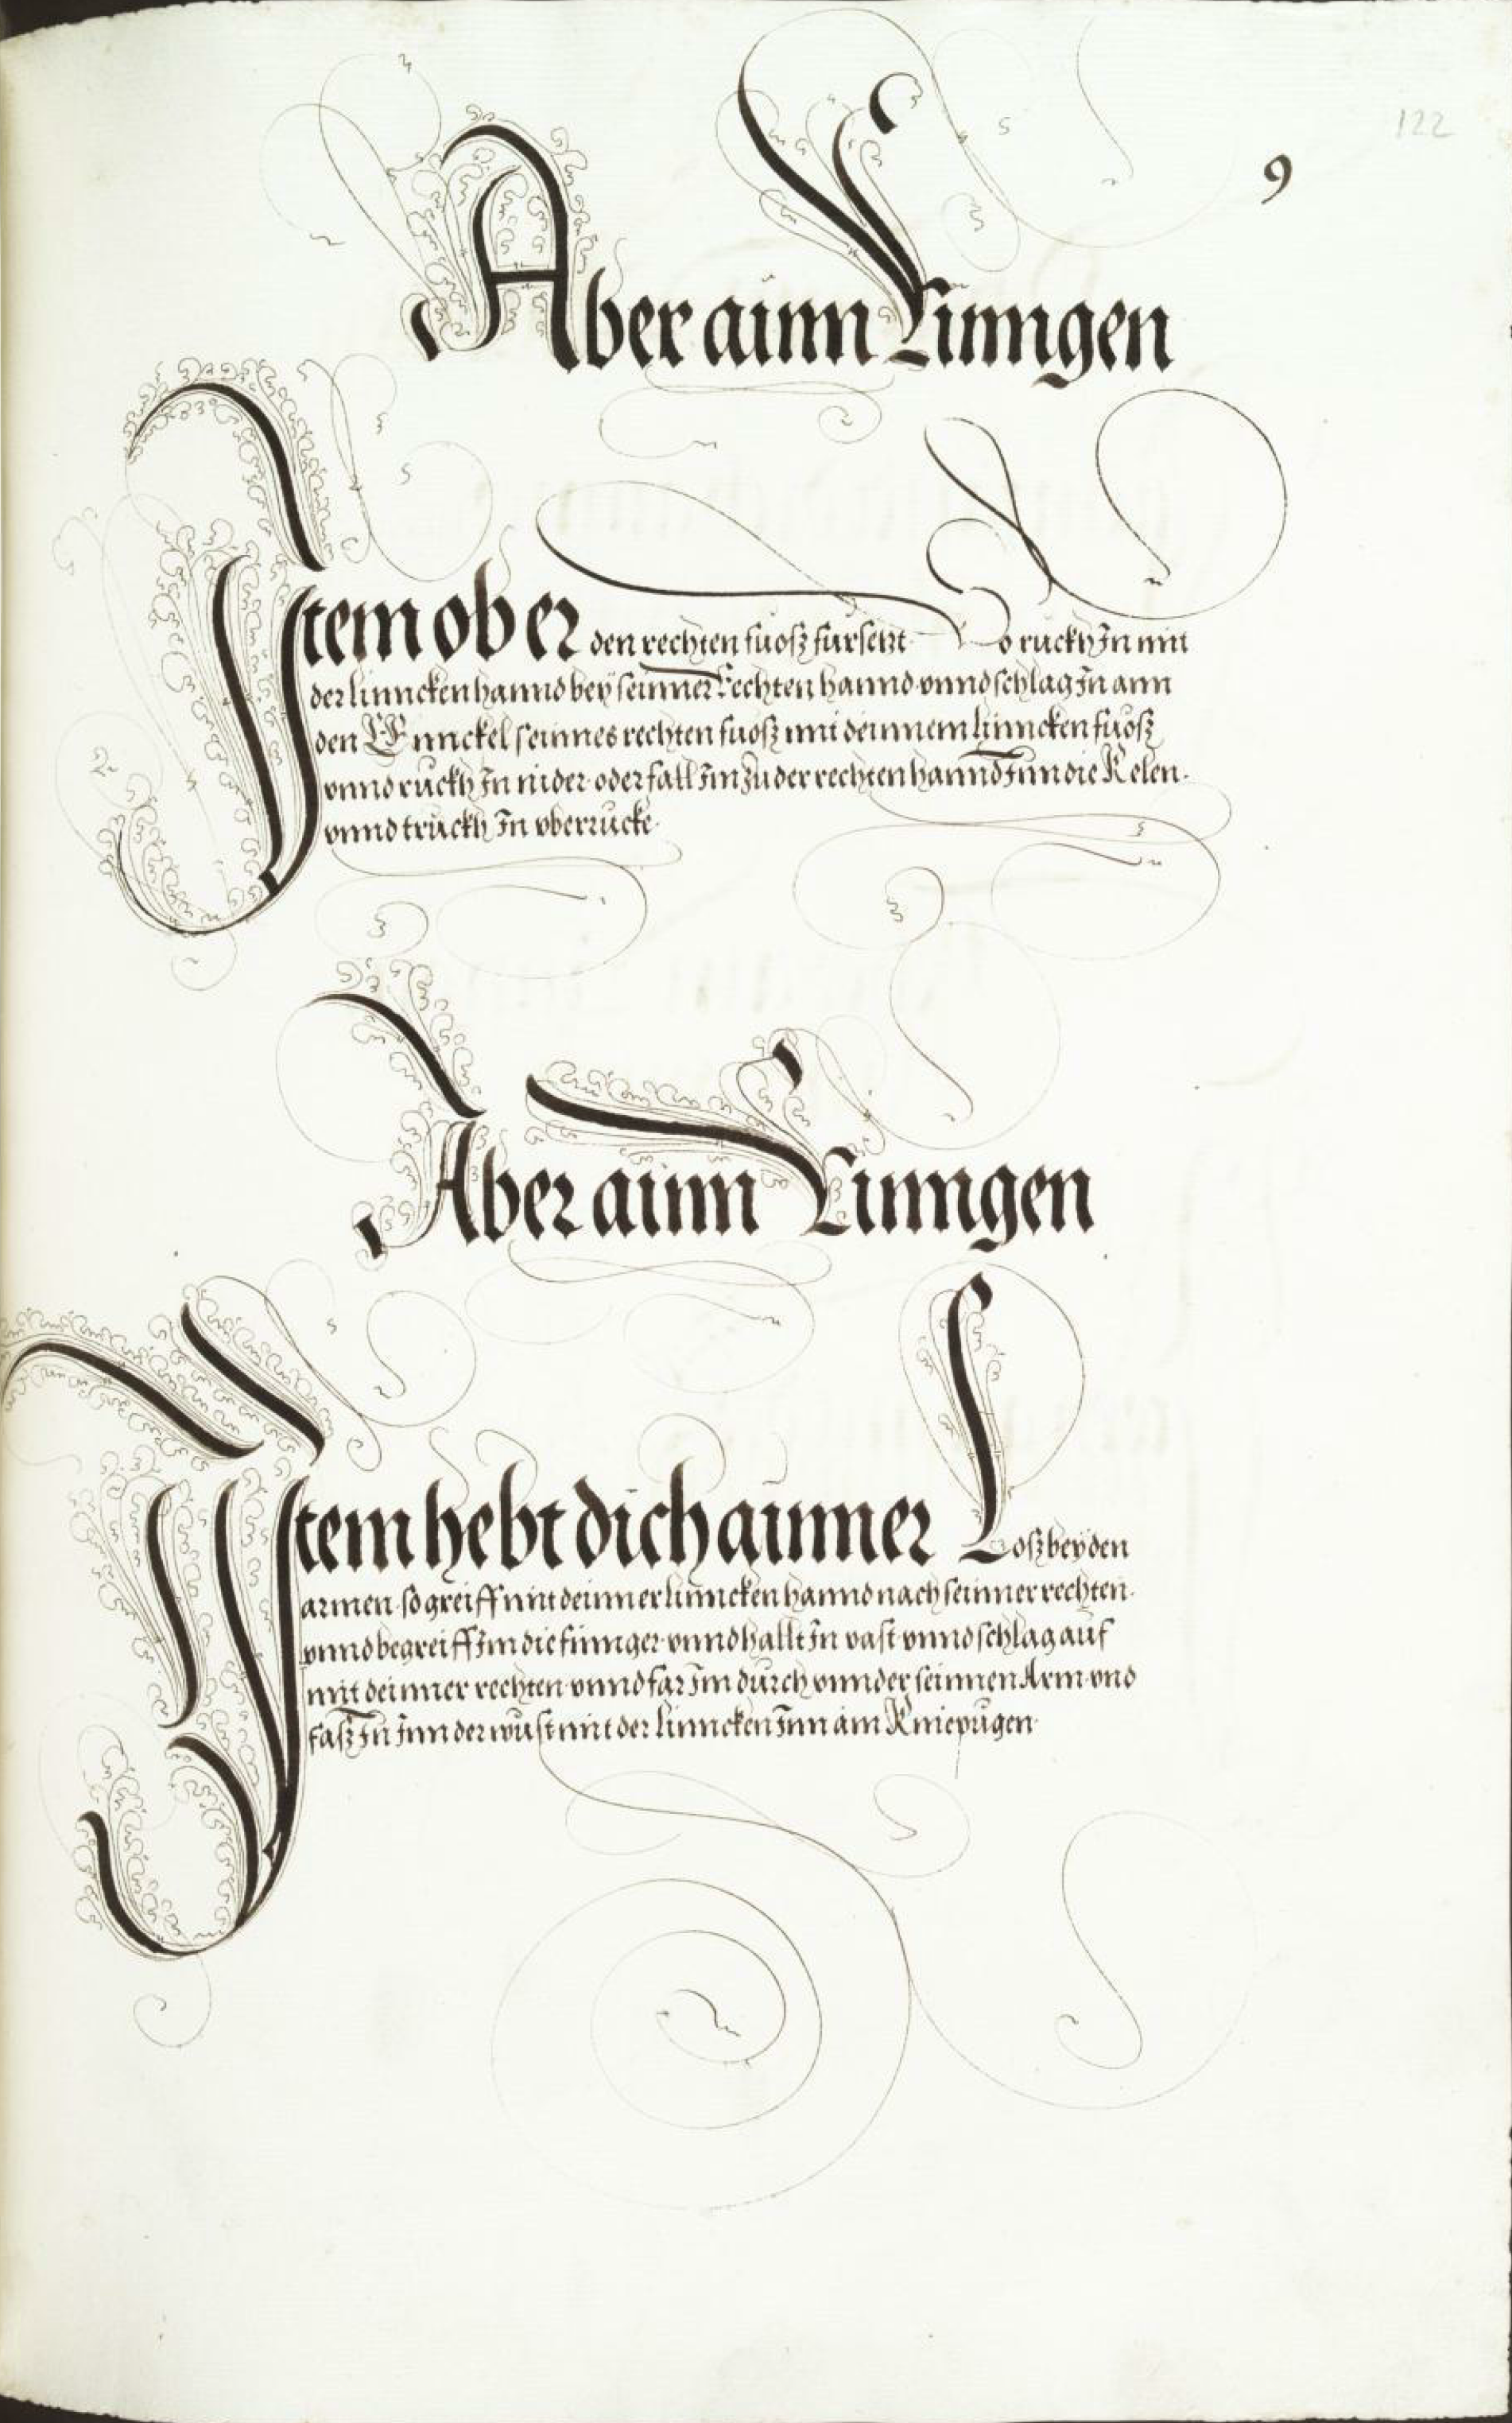 122
9
Aber ainn Rinngen
Item ob er den rechten fuosz fürsetzt So ruckh In mit
der linncken hannd beÿ seinner Rechten hannd vnnd schlag In ann
den Ennckel seinnes rechten fuosz mit deinnem linncken fuosz
vnnd ruckh In nider oder fall Im zu der rechten hannd Inn die Kelen
vnnd truckh In vberrucke
Aber ainn Rinngen
Item hebt dich ainner Losz beÿ den
armen so greiff mit deinner linncken hannd nach seinner rechten
vnnd begreiff Im die finnger vnnd hallt In vast vnnd schlag auf
mit deinner rechten vnnd far Im durch vnnder seinnen Arm vnd
fasz In Inn der wust mit der linncken Inn ain Kniepugen